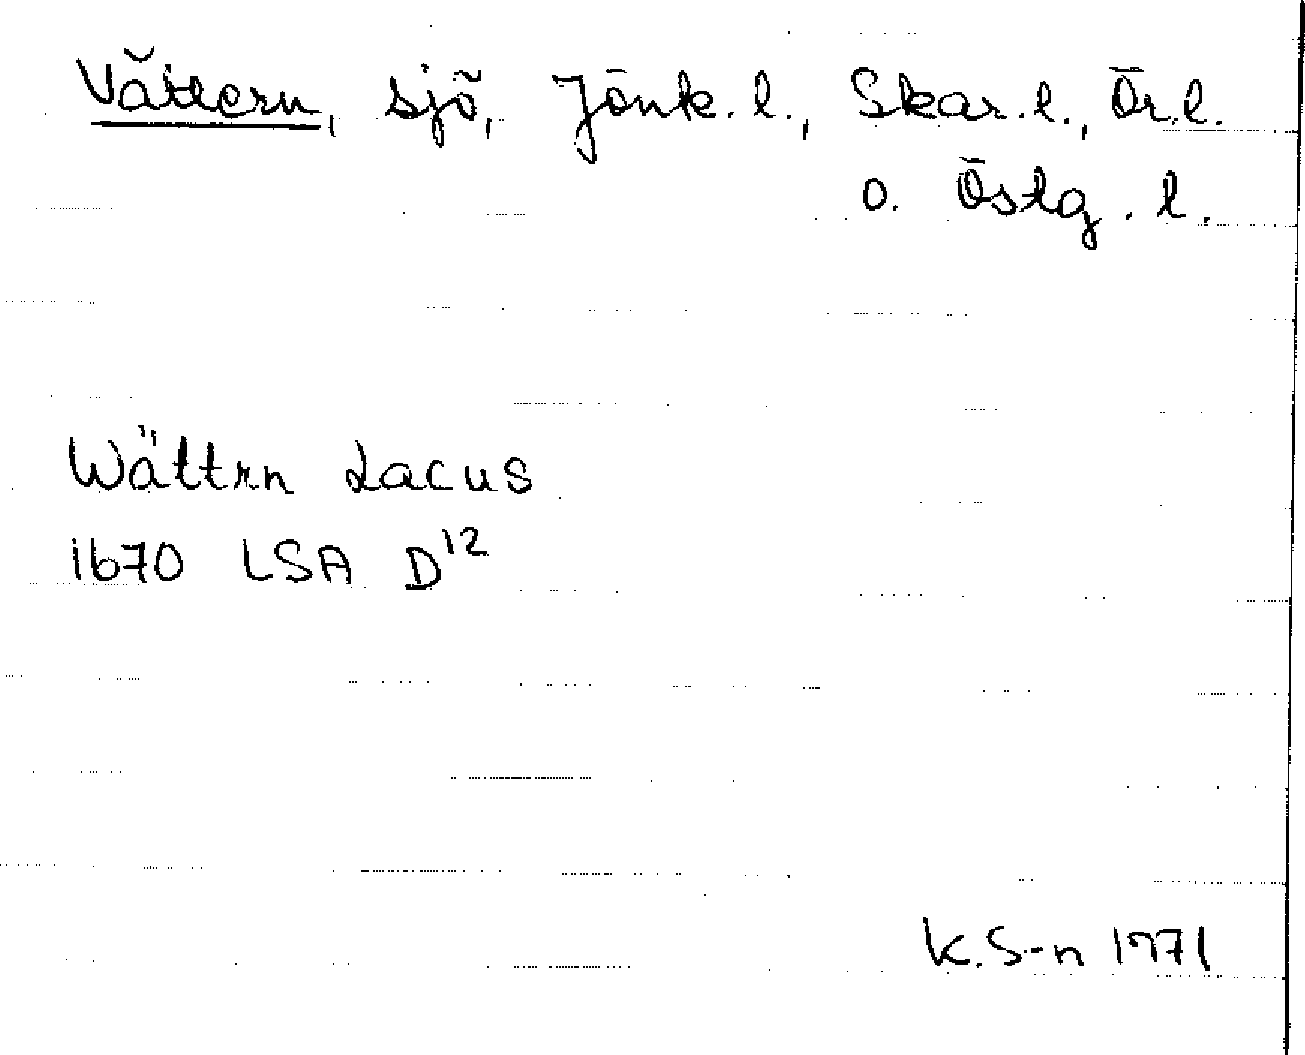 Vättern, sjö, Jönk. l., Skar. l., Ör. l.
o. Östg. l.
Wättrn Lacus
1670 LSA D12
K. S-n 1971